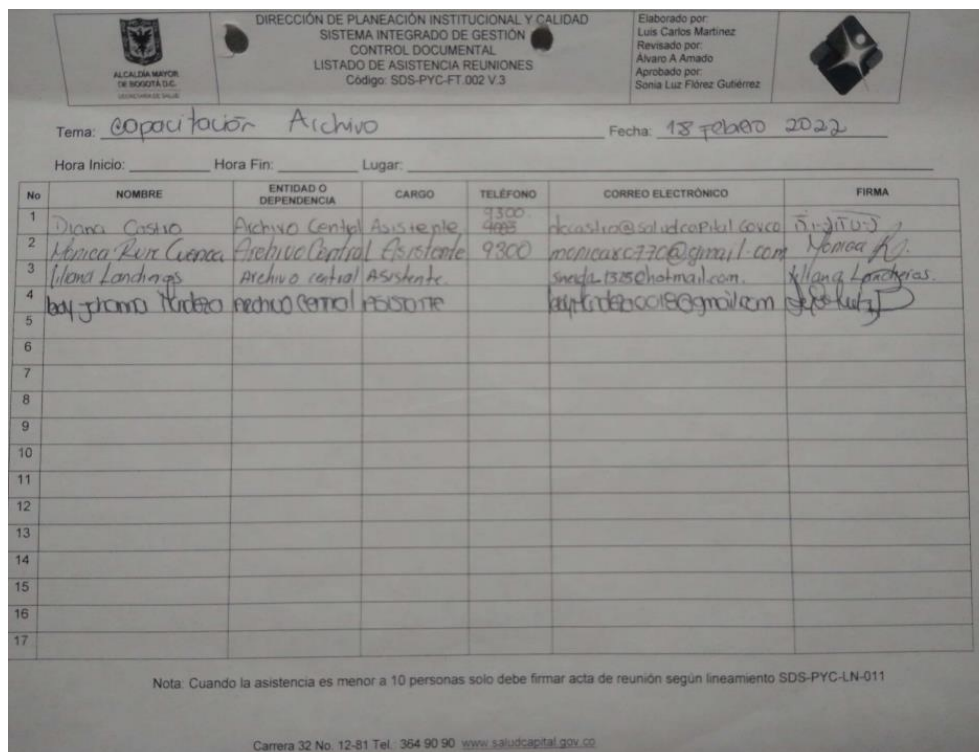 ALCALDÍA MAYOR
DE BOGOTÁ D.C.
SECRETARÍA DE SALUD
DIRECCIÓN DE PLANEACIÓN INSTITUCIONAL Y CALIDAD
SISTEMA INTEGRADO DE GESTIÓN
CONTROL DOCUMENTAL
LISTADO DE ASISTENCIA REUNIONES
Código: SDS-PYC-FT.002 V.3
Elaborado por:
Luis Carlos Martínez
Revisado por:
Álvaro A Amado
Aprobado por:
Sonia Luz Flórez Gutiérrez
Tema: Capacitación Archivo Fecha: 18 Febrero 2022
Hora Inicio: Hora Fin: Lugar:
No NOMBRE ENTIDAD O DEPENDENCIA CARGO TELÉFONO CORREO ELECTRÓNICO FIRMA
1 Diana Castro Archivo Central Asistente 9300 dccastro@saludcapital.gov.co
2 Monica Ruiz Cuenca Archivo Central Asistente 9300 monicarc770@gmail.com Monica R
3 Liliana Archivo central Asistente. Liliana Lancheros.
4 Johanna Archivo Central Asistente
5
6
7
8
9
10
11
12
13
14
15
16
17
Nota: Cuando la asistencia es menor a 10 personas solo debe firmar acta de reunión según lineamiento SDS-PYC-LN-011
Carrera 32 No. 12-81 Tel.: 364 90 90 www.saludcapital.gov.co